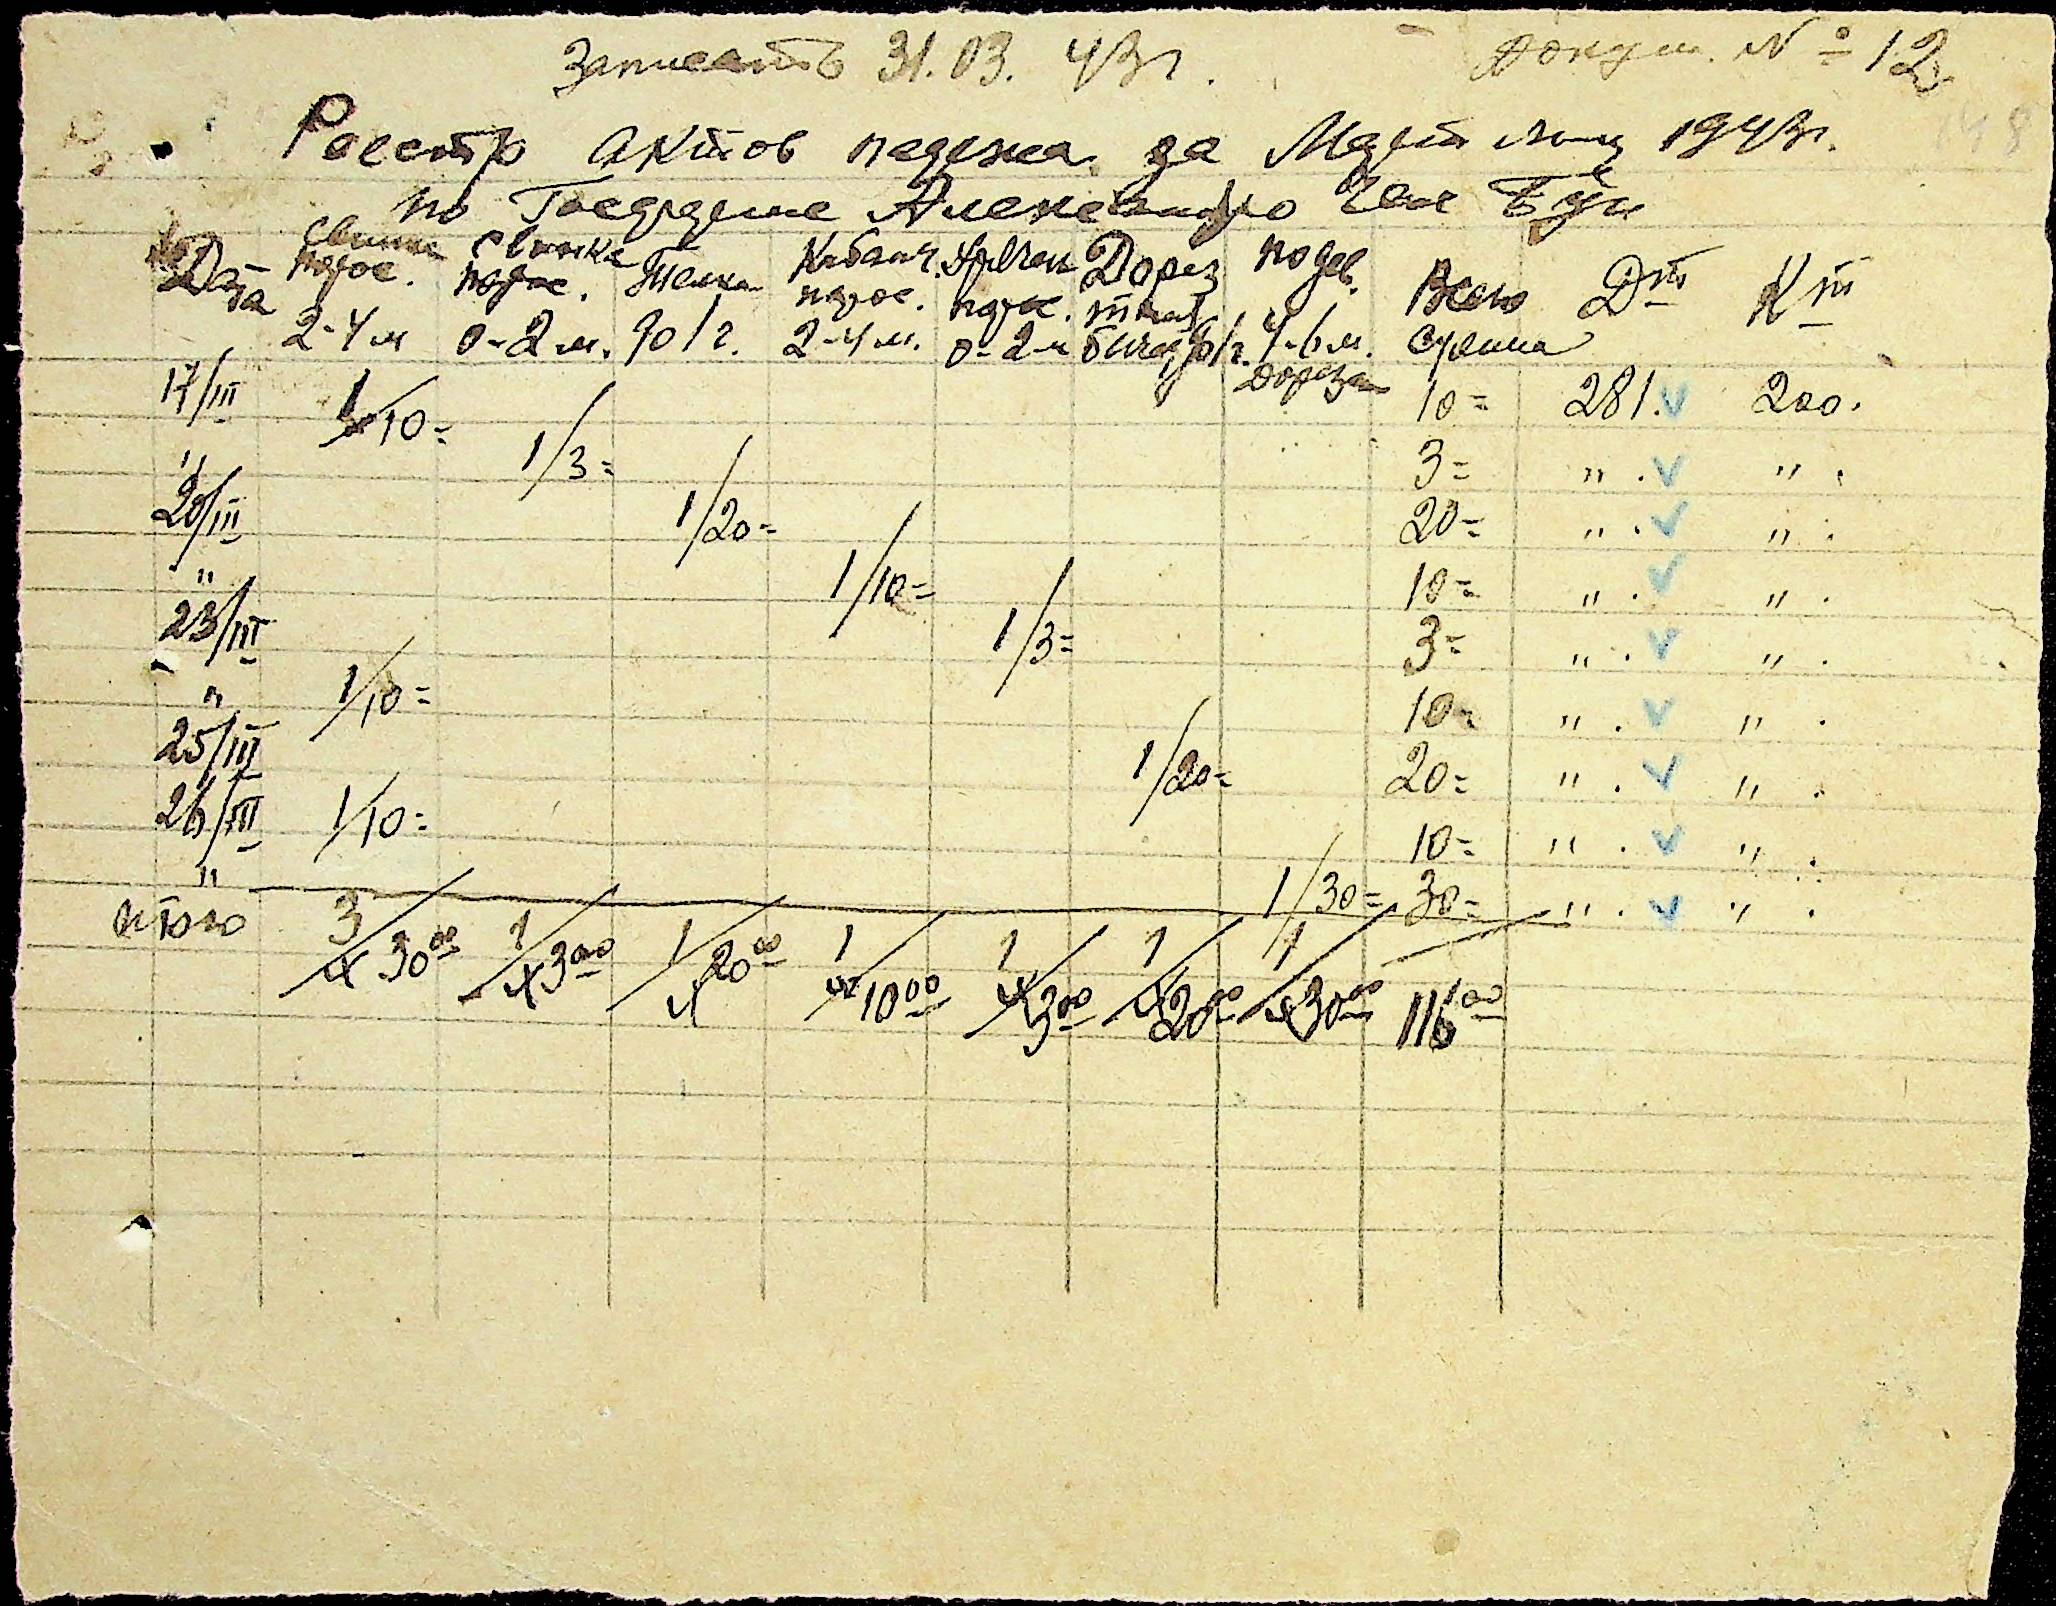 Записать 31.03.43г. Докум. № 12
Реестр актов падежа за Март м-ц 1943г.
по Госдядше Александро
Дата свинка порос. 2-4 м свинка порос. 0-2 м. Телка до 1 г. Кабанч. порос. 2-4 м. порос. 0-2 м Дорез до 1 г. подсв. 4-6 м. дорезан Всего сумма Дт Кт
17/III 1/10= 10= 281. V 200.
" 1/3= 3= " . V " .
20/III 1/20= 20= " . V " .
" 1/10= 10= " . V " .
23/III 1/3= 3= " . V " .
" 1/10= 10= " . V " .
25/III 1/20= 20= " . V " .
26/III 1/10= 10= " . V " .
" 1/30= 30= " . V " .
итого 3/30 00 1/3 00 1/20 00 1/10 00 1/3 00 1/20 00 1/30 00 116 00